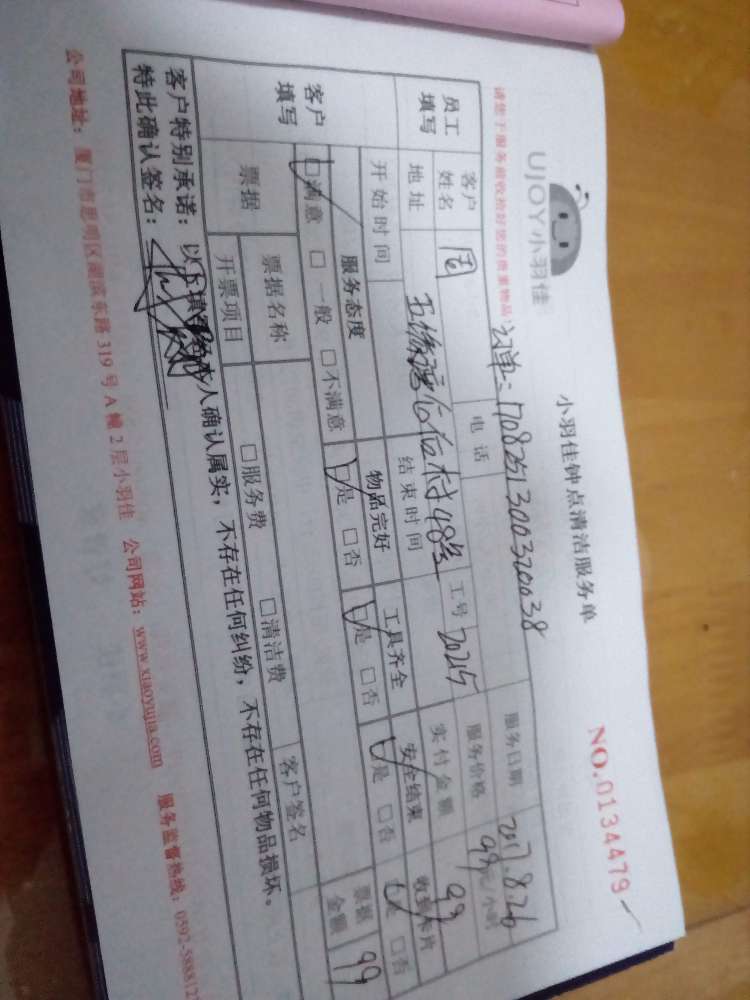 UJOY小羽佳
小羽佳钟点清洁服务单
NO.0134479
请您于服务前收拾好您的贵重物品!
订单:1708251300320038
服务日期 2017.8.26
员工填写 客户姓名 周 电话 工号 20215 服务价格 99元/小时
地址 后村48号 实付金额 99
开始时间 结束时间
客户填写 服务态度 物品完好 工具齐全 安全结束 收据卡片
□满意 □一般 □不满意 □是 □否 □是 □否 □是 □否 □是 □否
票据 票据名称 □服务费 □清洁费 客户签名 票据金额 99
开票项目
客户特别承诺:以上填写经本人确认属实,不存在任何纠纷,不存在任何物品损坏。
特此确认签名:
公司地址:厦门市思明区湖滨东路319号A幢2层小羽佳 公司网站:www.xiaoyujia.com 服务监督热线:0592-588812